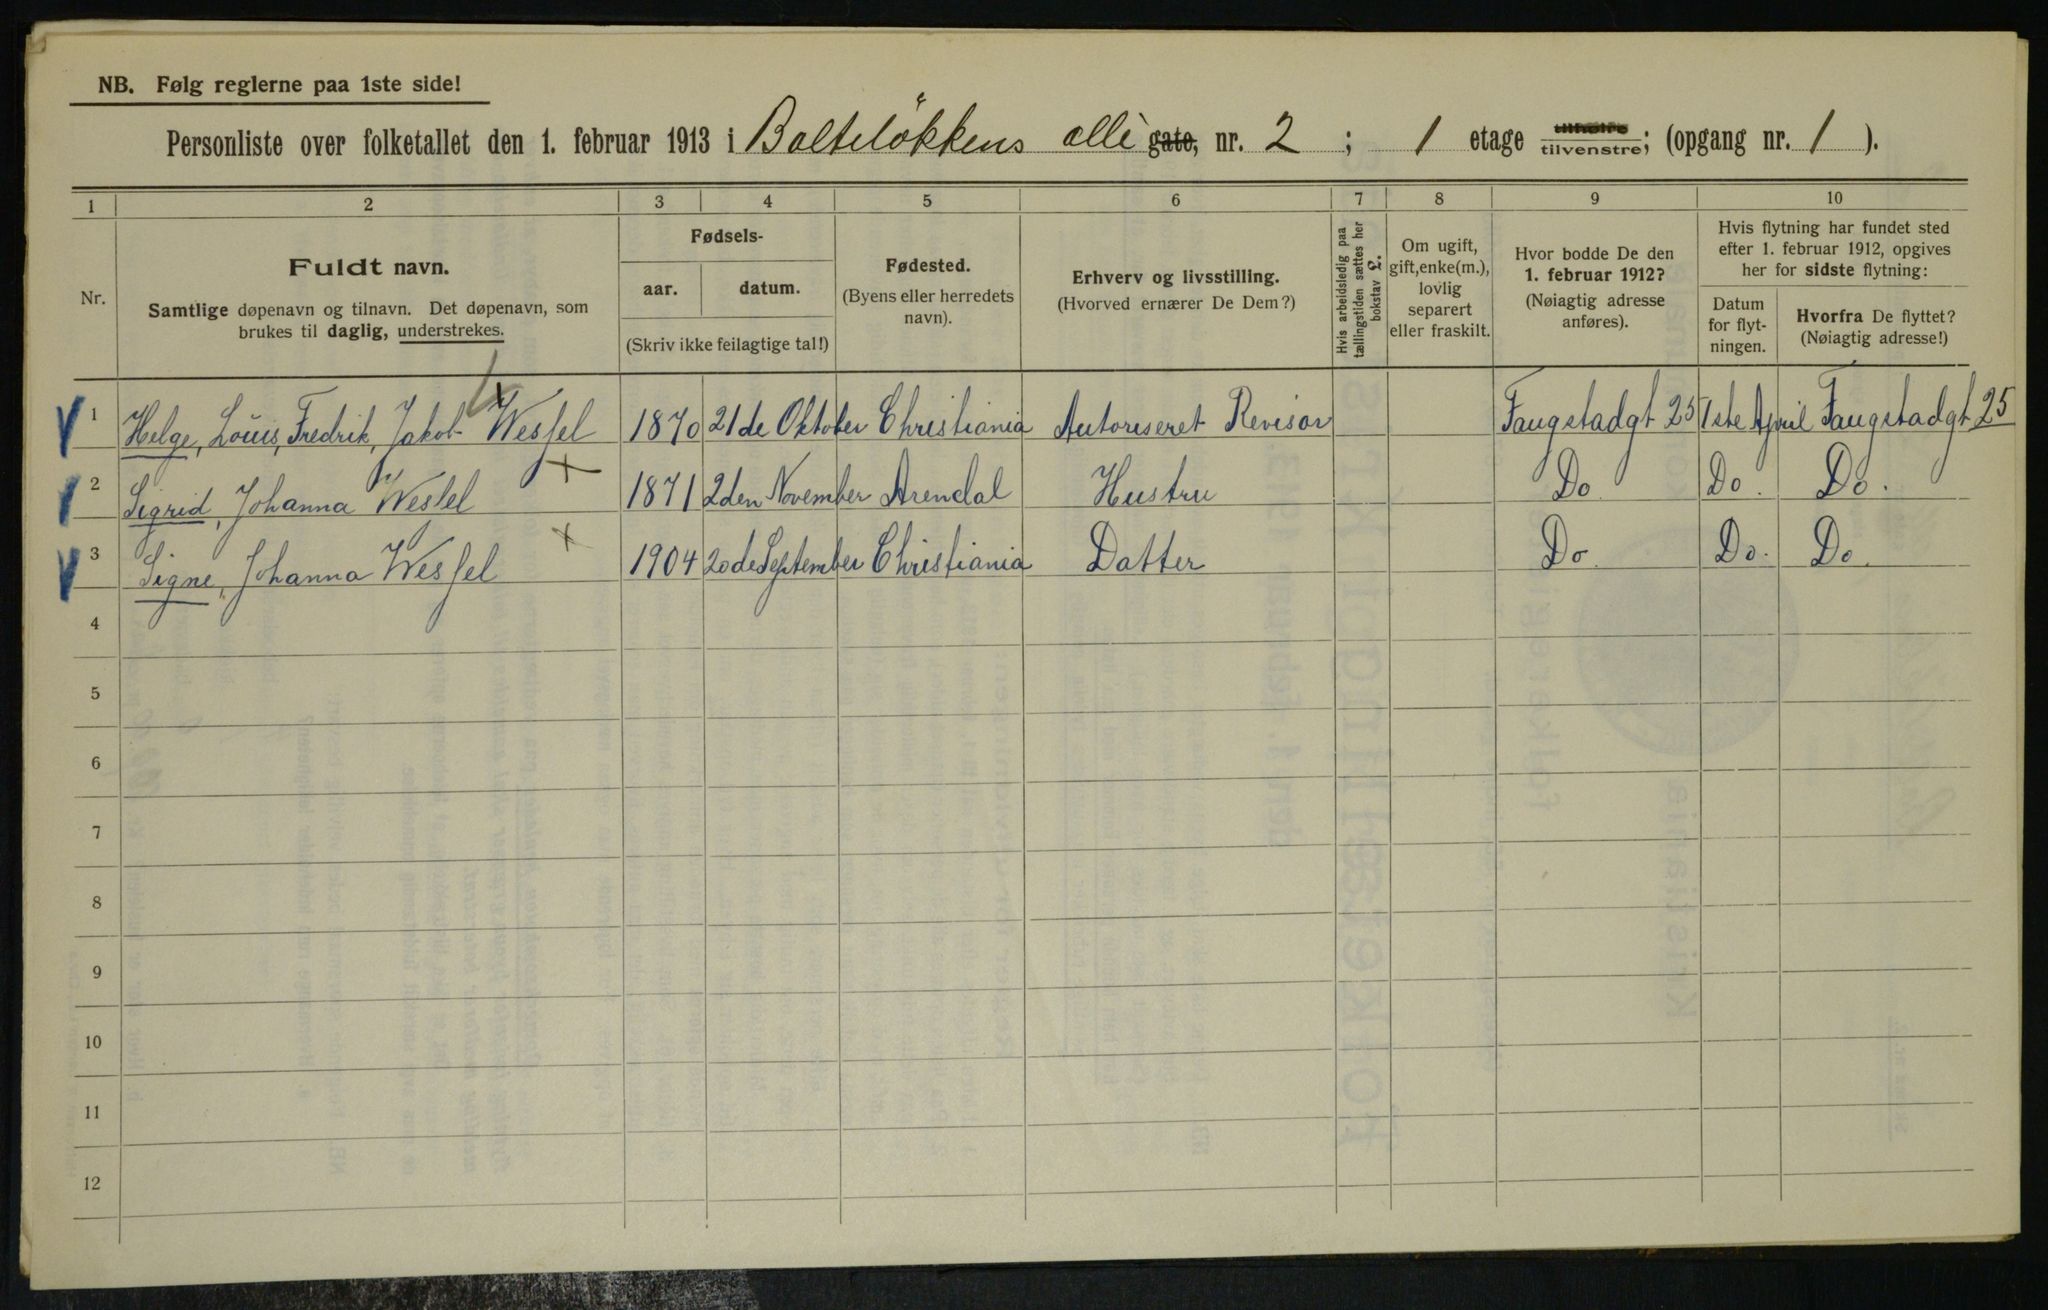 NB. Følg reglerne paa 1ste side!
Personliste over folketallet den 1. februar 1913 i Balteløkkens allè gate, nr. 2 ; 1 etage tilhøire tilvenstre; (opgang nr. 1 ).
1 2 3 4 5 6 7 8 9 10
Nr.
Fuldt navn.
Samtlige døpenavn og tilnavn. Det døpenavn, som
brukes til daglig, understrekes.
Fødsels-
aar. datum.
(Skriv ikke feilagtige tal!)
Fødested.
(Byens eller herredets
navn).
Erhverv og livsstilling.
(Hvorved ernærer De Dem?)
Hvis arbeidsledig paa
tællingstiden sættes her
bokstav L.
Om ugift,
gift, enke(m.),
lovlig
separert
eller fraskilt.
Hvor bodde De den
1. februar 1912?
(Nøiagtig adresse
anføres).
Hvis flytning har fundet sted
efter 1. februar 1912, opgives
her for sidste flytning:
Datum
for flyt-
ningen.
Hvorfra De flyttet?
(Nøiagtig adresse!)
1 Helge, Louis, Fredrik, Jakob Wessel 1870 21de Oktober Christiania Autoriseret Revisor Faugstadgt 25 1ste April Faugstadgt 25
2 Sigrid, Johanna Wessel 1871 2den November Arendal Hustru Do Do. Do.
3 Signe, Johanna Wessel 1904 20de September Christiania Datter Do Do. Do.
4
5
6
7
8
9
10
11
12